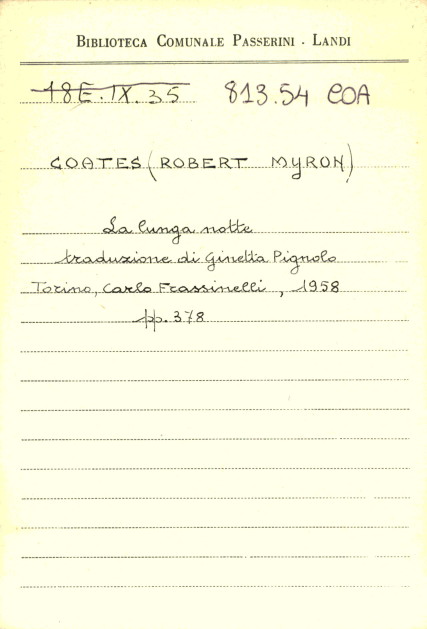 BIBLIOTECA COMUNALE PASSERINI - LANDI
18E.IX.35 813.54 COA
COATES (ROBERT MYRON)
La lunga notte
traduzione di Ginetta Pignolo
Torino, Carlo Frassinelli, 1958
pp. 378